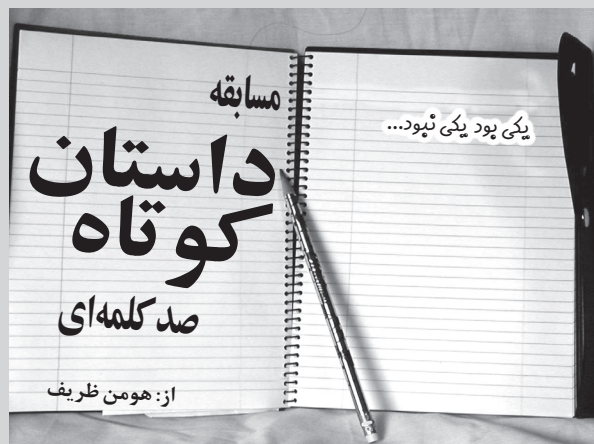 یکی بود یکی نبود...
مسابقه
داستان
کوتاه
صد کلمه‌ای
از: هومن ظریف